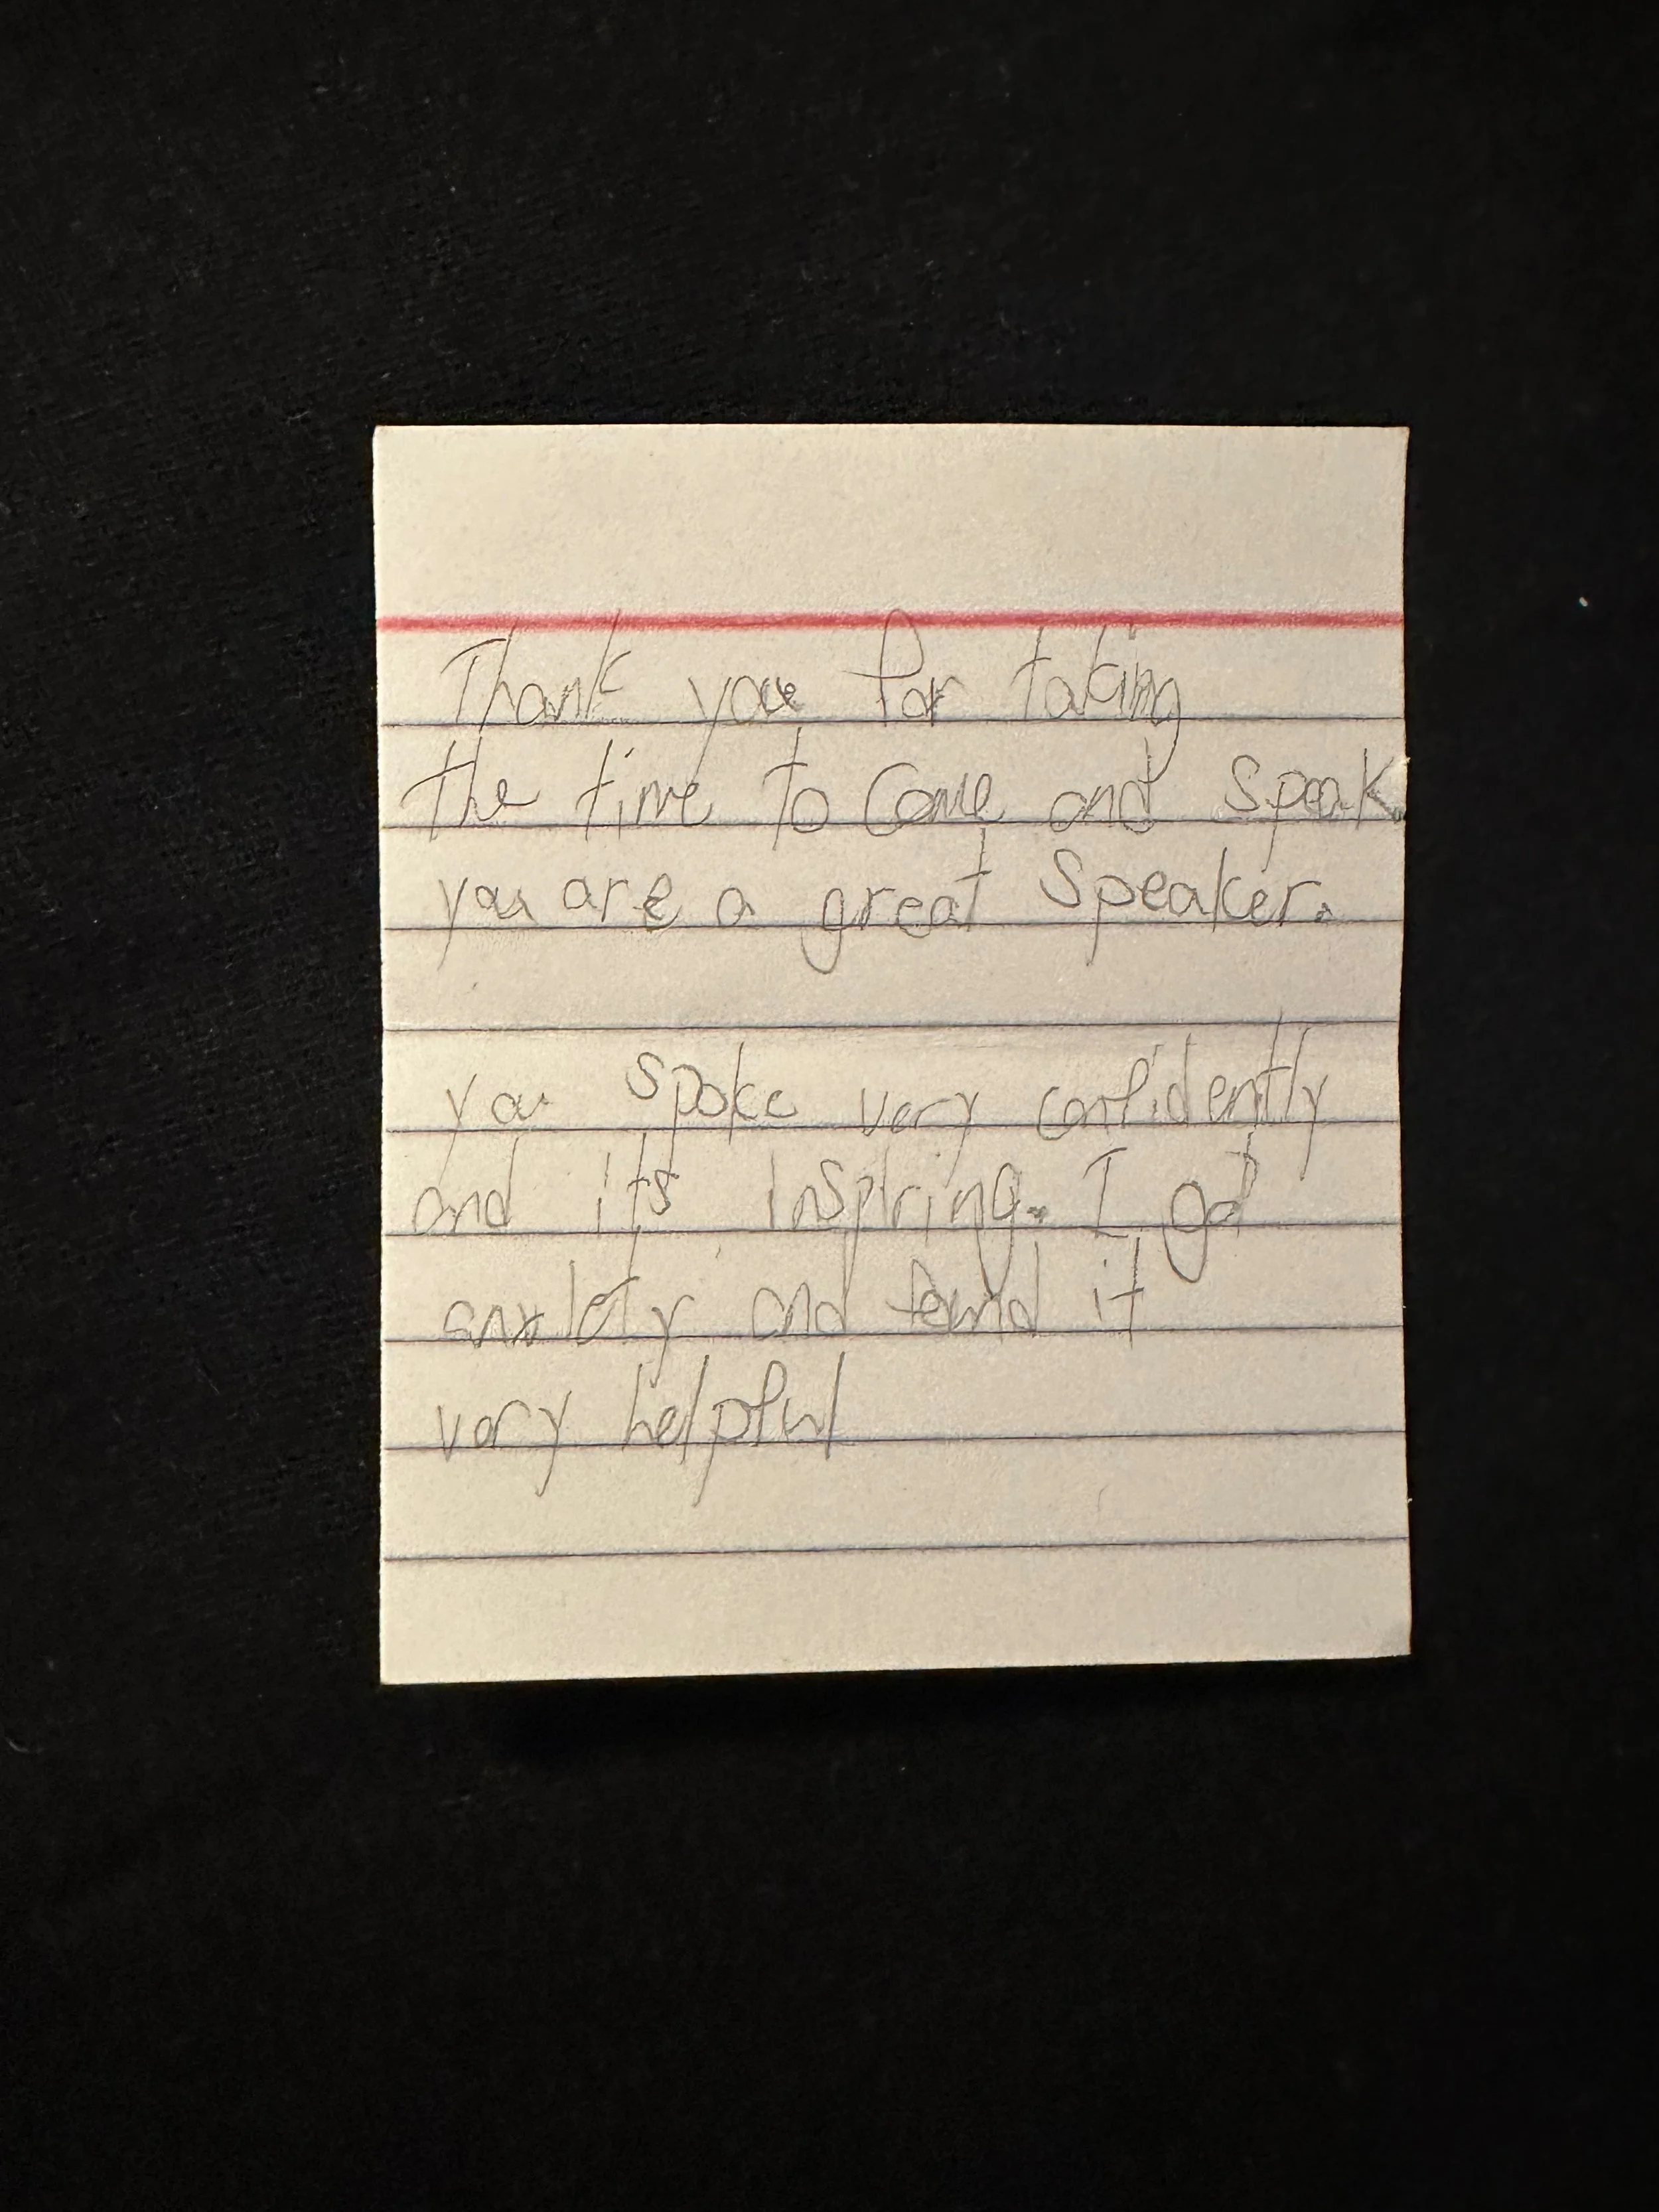 Thank you for taking
the time to Come and Speak
you are a great Speaker.
you spoke very confidently
and its inspiring. I got
anxiety and found it
very helpful